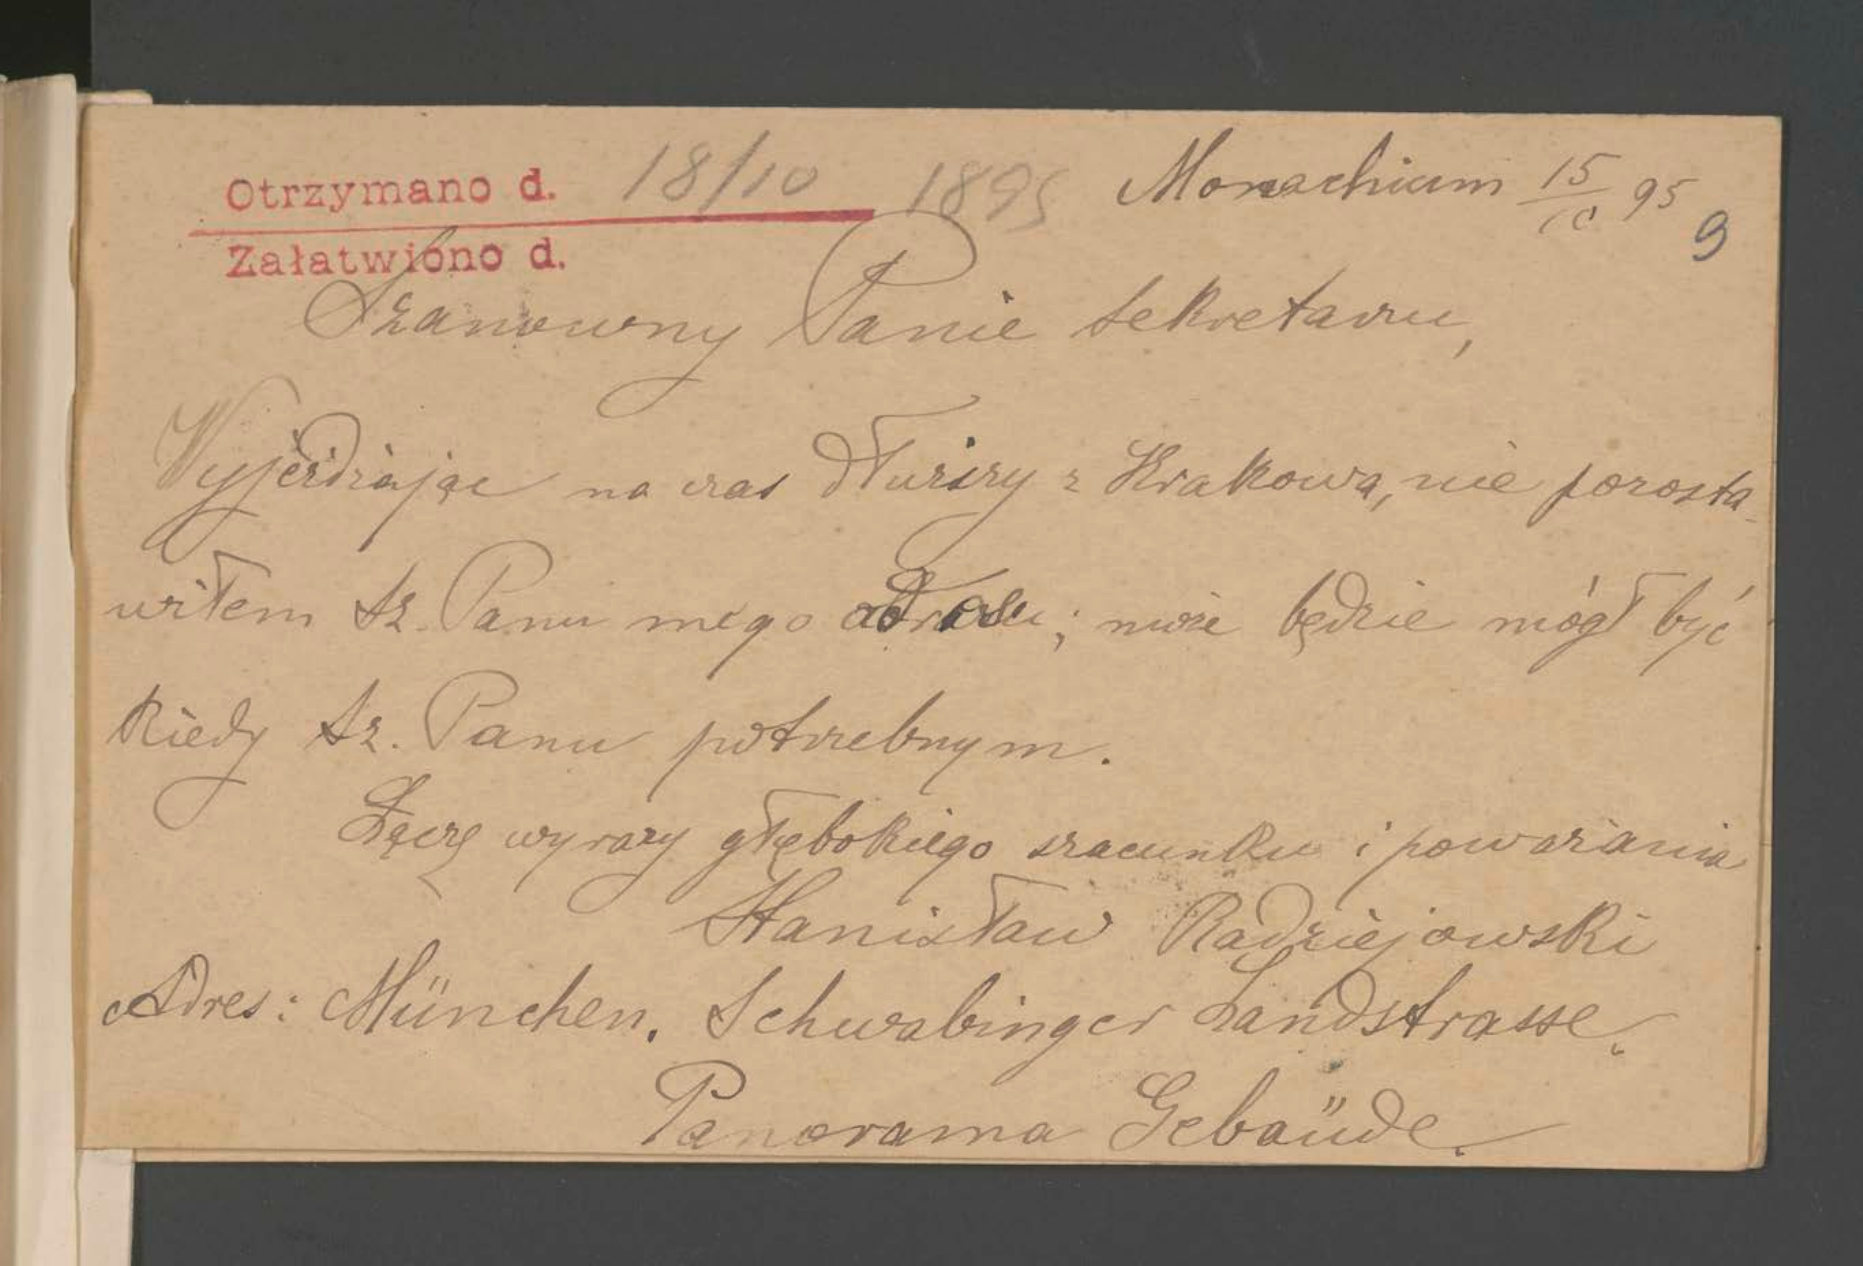 Otrzymano d. 18/10 1895 Monachium 15/10 95
9
Załatwiono d.
Szanowny Panie Sekretarzu,
Wyjeżdżając na czas dłuższy z Krakowa, nie pozosta-
wiłem Sz. Panu mego adresu; może będzie mógł być
kiedy Sz. Panu potrzebnym.
Łączę wyrazy głębokiego szacunku i poważania
Stanisław Radziejowski
Adres: München. Schwabinger Landstrasse.
Panorama Gebaüde.